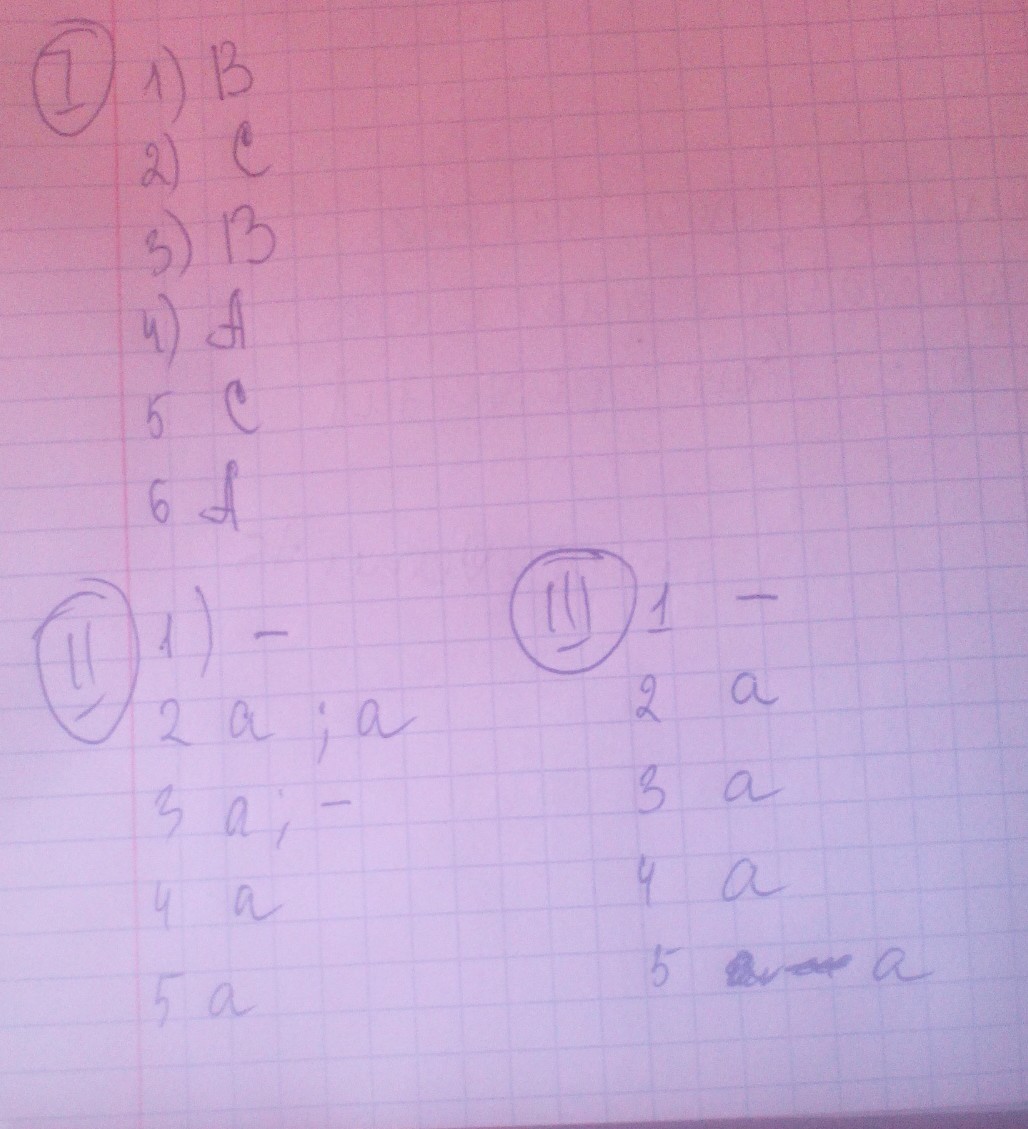 I 1) B
2) C
3) B
4) A
5 C
6 A
II 1) –
2 a ; a
3 a ; –
4 a
5 a
III 1 –
2 a
3 a
4 a
5 a